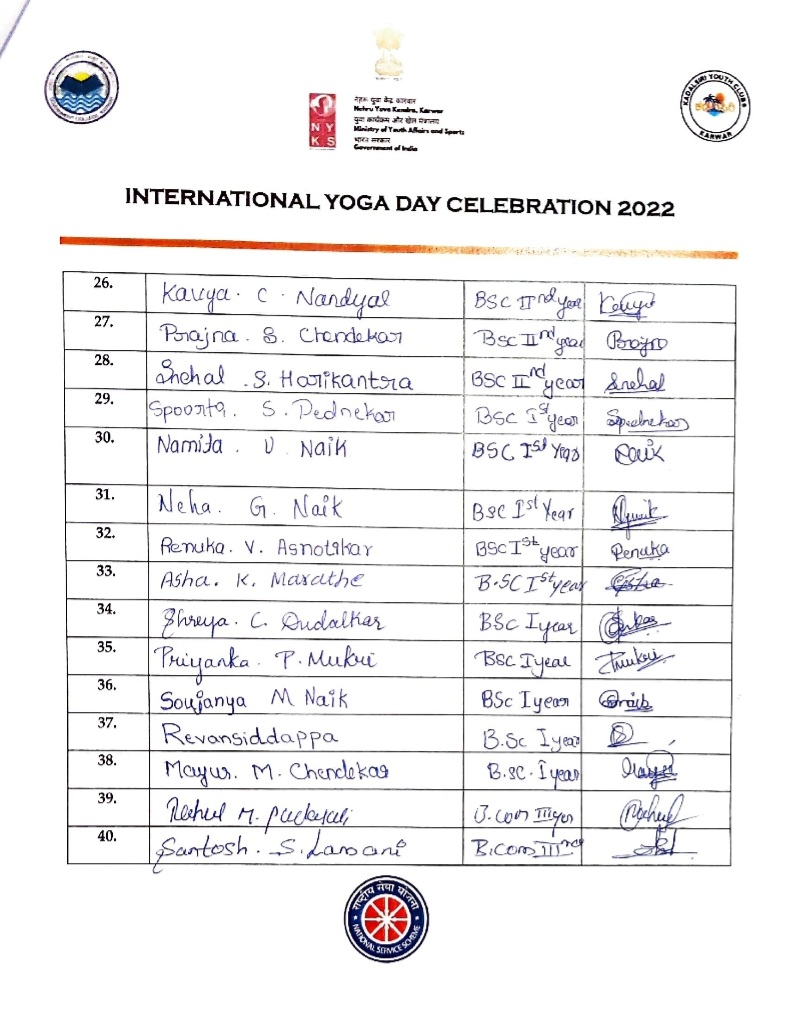 नेहरू युवा केंद्र कारवार
Nehru Yuva Kendra, Karwar
युवा कार्यक्रम और खेल मंत्रालय
Ministry of Youth Affairs and Sports
भारत सरकार
Government of India
NY
KS
KADALSIRI YOUTH CLUB
KARWAR
INTERNATIONAL YOGA DAY CELEBRATION 2022
26. Kavya. C. Nandyal BSC IInd year Kavya
27. Prajna. S. Chendekar BSC IInd year Prajna
28. Snehal. S. Harikantra BSC IInd year Snehal
29. Spoorta. S. Pednekar BSC Ist year Spednekar
30. Namita. V Naik BSC Ist Year Naik
31. Neha. G. Naik BSC Ist Year
32. Renuka. V. Asnotikar BSC Ist year Renuka
33. Asha. K. Marathe B.SC Ist year Asha
34. Shreya. C. Dudalkar BSC I year
35. Priyanka. P. Mukri BSC I year Pmukri
36. Soujanya M Naik BSc I year Snaik
37. Revansiddappa B.Sc I year
38. Mayur. M. Chendekar B.SC. I year Mayur
39. Rahul M. B.com III yer Rahul
40. Santosh. S. Lamani B.com IIIrd
राष्ट्रीय सेवा योजना
NATIONAL SERVICE SCHEME